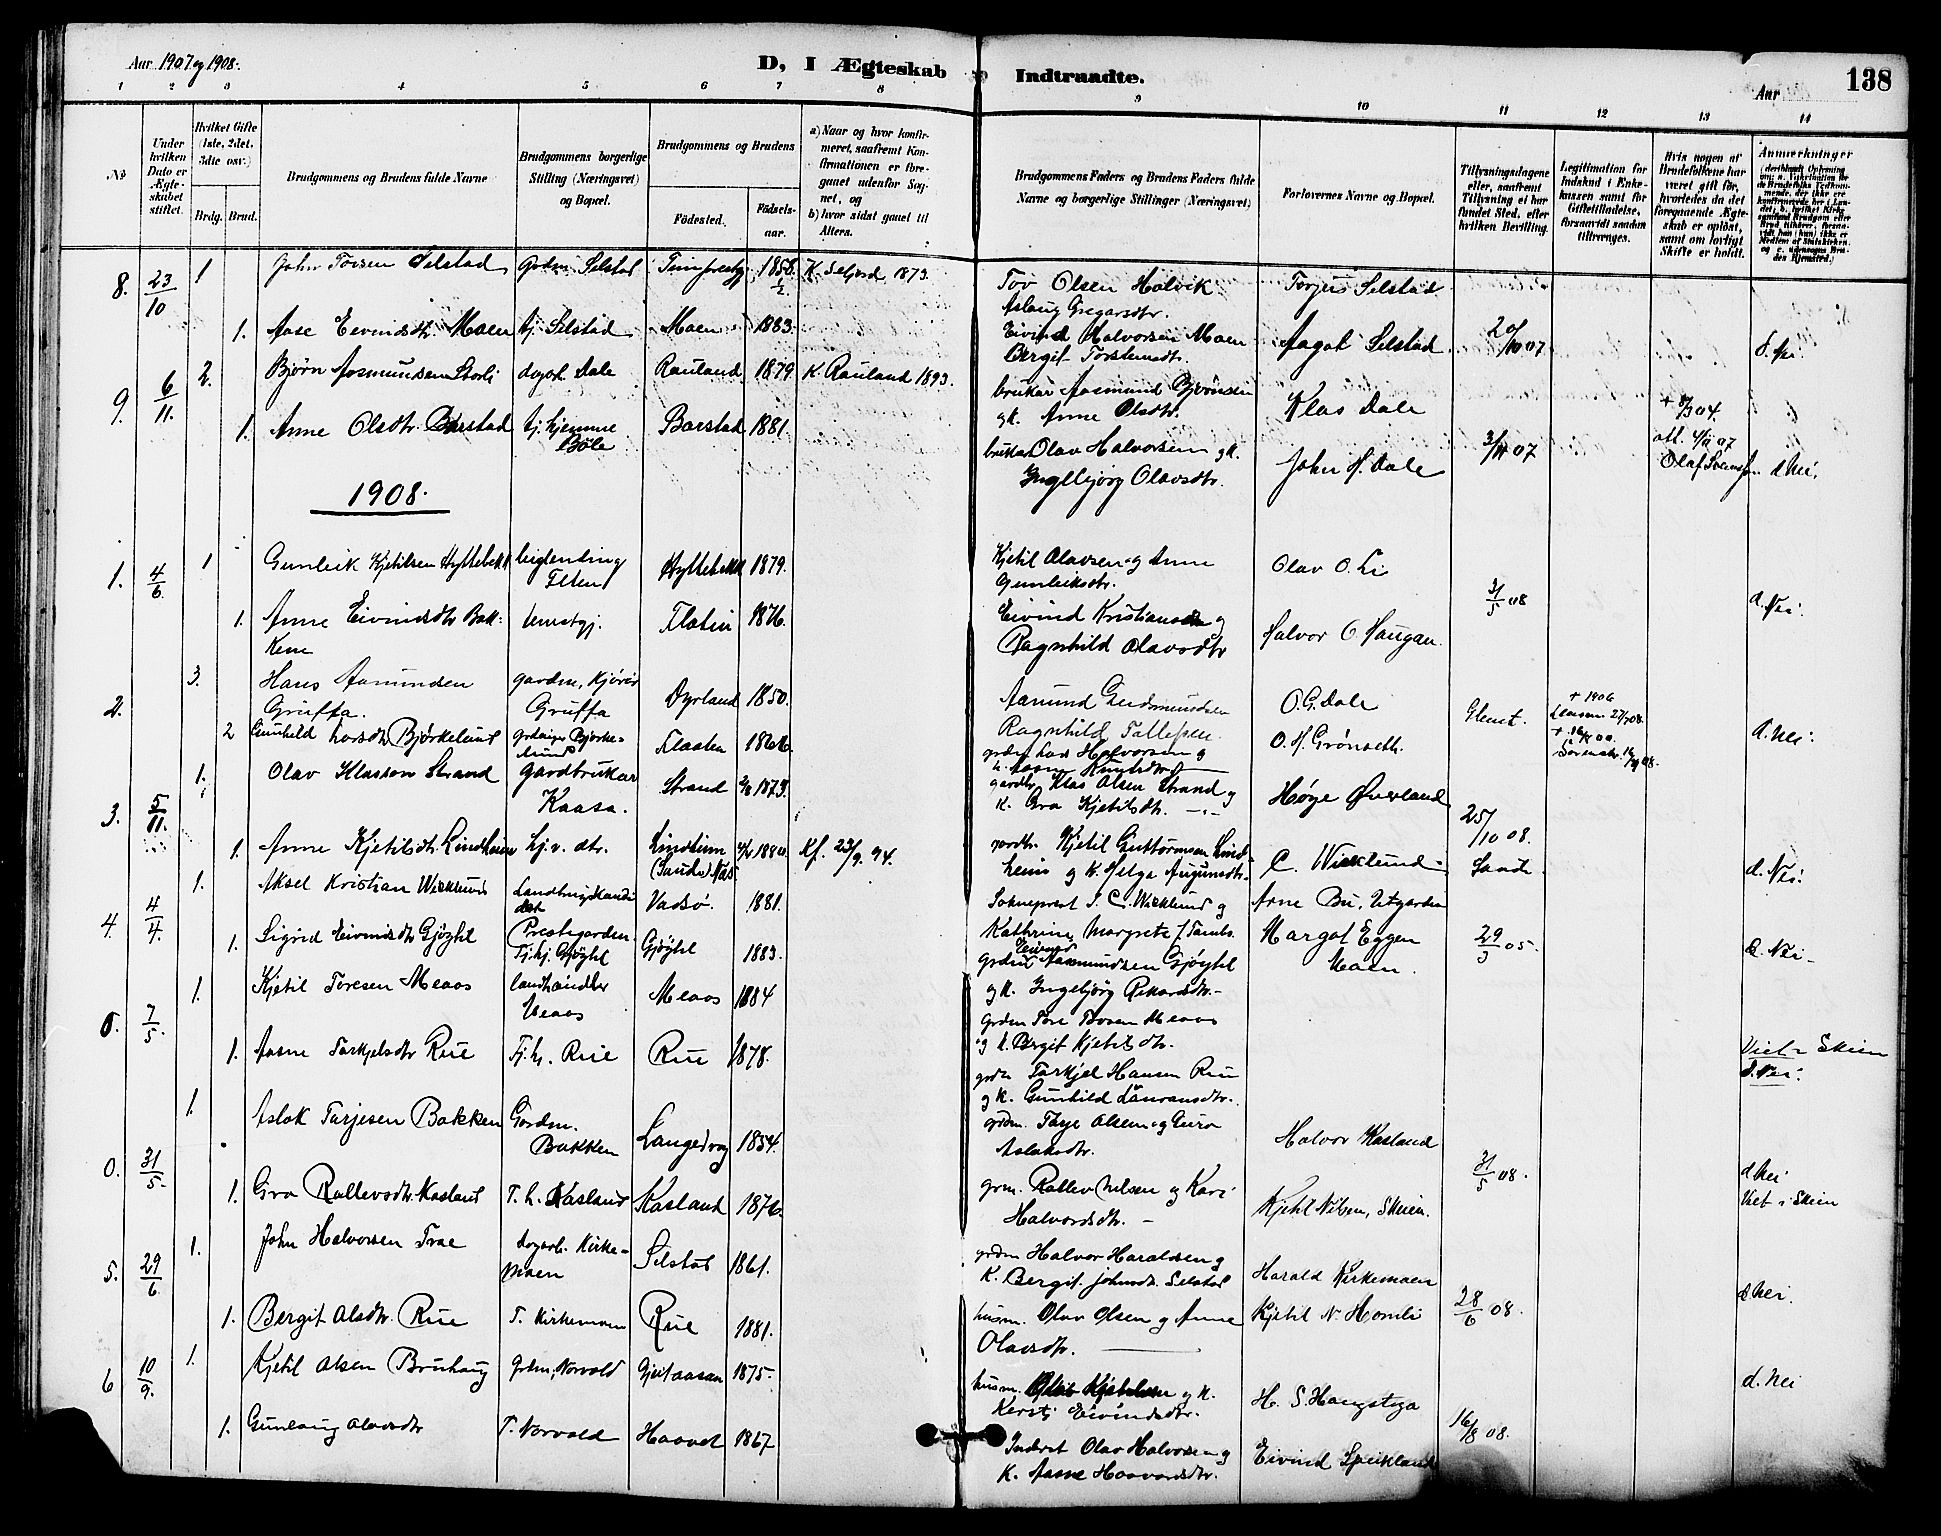 Aar 1907 og 1908.
D, I Ægteskab Indtraadte.
Aar
138
1 2 3 4 5 6 7 8 9 10 11 12 13 14
No
Under hvilken Dato er Ægteskabet stiftet.
Hvilket Gifte (1ste, 2det, 3die osv.)
Brdg. Brud.
Brudgommens og Brudens fulde Navne
Brudgommens borgerlige Stilling (Næringsvei) og Bopæl.
Brudgommens og Brudens
Fødested.
Fødselsaar.
a) Naar og hvor konfirmeret, saafremt Konfirmationen er foregaaet udenfor Sognet, og
b) hvor sidst gaaet til Alters.
Brudgommens Faders og Brudens Faders fulde Navne og borgerlige Stillinger (Næringsvei)
Forlovernes Navne og Bopæl.
Tillysningsdagene eller, saafremt Tillysning ei har fundet Sted, efter hvilken Bevilling.
Legitimation for Indskud i Enkekassen samt for Giftetilladelse, forsaavidt saadan tiltrænges.
Hvis nogen af Brudefolkene har været gift før, hvorledes da det foregaaende Ægteskab er opløst, samt om lovligt Skifte er holdt.
Anmærkninger
8. 23/10 1 John Tovsen Selstad Grdm. Selstad 1858 K. Seljord 1873. Tov Olsen Halvik Torjus Selstad
Aslaug Gregarsdtr.
1. Aase Eivindsdtr. Moen tj. Selstad Moen 1883 Eivind Halvorsen Moen Aagot Selstad 20/10 07 d. Nei
Bergit Torsteinsdtr.
9. 6/11. 2. Bjørn Aasmundsen Storli Dale Rauland 1879 K. Rauland 1893. brukar Aasmund Bjørnsen Klas Dale
gk. Anne Olsdtr.
1. Anne Olsdtr. Barstad tj. hjemme Bøle Barstad 1881. brukar Olav Halvorsen gk. John H. Dale 3/11 07 Olaf d. Nei.
Ingebjørg Olavsdtr.
1908.
1. 4/6. 1 Gunleik Kjetilsen Hyttebekk Hyttebekk 1879. Kjetil Olavsen og Anne Olav O. Li
Gunleiksdtr.
1. Anne Eivindsdtr Bakken Flatin 1876. Eivind Kristiansen og Halvor O. Haugan. 31/5 08 d. Nei.
Ragnhild Olavsdtr
2. 3. Hans Aamundsen Gruffa. Gruffa Dyrland 1850. Aamund O. G. Dale + 1906
Ragnhild
2 Gunhild Larsdtr. Bjørkelund Flaaten 1866. Lars Halvorsen og O. H. Grønseth. d. Nei.
3. 5/11. 1. Olav Klasson Strand Gardbrukar Kaasa. Strand 1873. gardbr. Klas Olsen Strand og Høye Øverland
k. Gro Kjetilsdtr.
1. Anne Kjetilsdtr. Lindheim hj. v. dtr. Lindheim (Saude) Nes 1880. Kf. 23/9. 94. gardbr. Kjetil Guttormsen Lindheim og k. Helga C. Wicklund 25/10 08. Sande. d. Nei.
4. 4/4. 1. Aksel Kristian Wicklund Landbrugskandidat Prestegarden Vadsø. 1881. Sokneprest J. C. Wicklund og Arne Bu, Utgarden
Kathrine Margrete f.
1. Sigrid Eivindsdtr Gjøyhl Tj. hj. Gjøyhl Gjøyhl 1883. grdm. Eivind Aasmundsen Gjøyhl Margot Eggen Moen. 29/3 05. d. Nei
og k. Ingebjørg Rikardsdtr.
5. 7/5. 1. Kjetil Toresen Meaas landhandler Meaas Meaas 1884 grdm Tore Tovsen Meaas
og k. Bergit Kjetilsdtr.
1. Aasne Tarkjelsdtr Rue Tj. h. Rue Rue 1878. grdm Tarkjel Hansen Rue Viet i Skien d. Nei.
og k. Gunhild
0. 31/5. 1. Aslak Tarjesen Bakken Gardm. Bakken Langedrag 1854. grdm. Tarje Olsen og Guro Halvor Kasland
Aslaksdtr.
1. Gro Rollevsdtr. Kasland T. h. Kasland Kasland 1876. grm. Rollev Nilsen og Kari Kjetil Nilsen, Skien. 31/5 08. d. Nei Viet i Skien
Halvordsdtr.
5. 29/6. 1. John Halvorsen Trae dagarb. Kirkemoen Selstad 1861. grdm Halvor Haraldsen og Harald Kirkemoen
K. Bergit Johnsdtr. Selstad
1. Bergit Olsdtr. Rue T. Kirkemoen Rue 1881. husm. Olav Olsen og Anne Kjetil N. Homli 28/6 08. d. Nei.
Olavsdtr.
6 10/9. 1. Kjetil Olsen Bruhaug Grdm, Norvald 1875. husm. Kjetilsen og k. H. S. Haugstoga d. Nei
Kersti Eivindsdtr.
1. Gunlaug Olavsdtr T. Norvald Haavet 1867 Inderst Olav Halvorsen og Eivind Speikland 16/8 08.
K. Aasne Haavardsdtr.